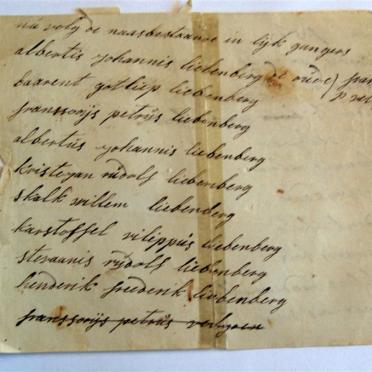 nu volg de naasbestaande in lyk gangers
albertus johannis liebenberg de oude)
baarent gotliep liebenberg
franssoijs petrus liebenberg
albertus johannis liebenberg
kristeyan rudolf liebenberg
skalk willem liebenberg
karstoffel vilippus liebenberg
stevaanis rudolf liebenberg
henderik frederik liebenberg
franssoijs petrus